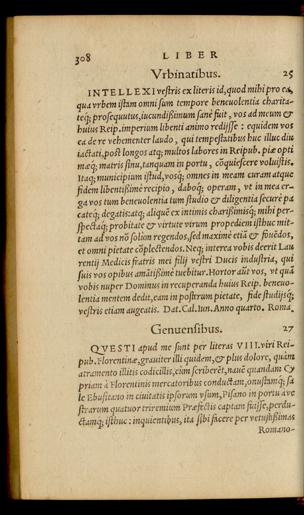 308 LIBER
Vrbinatibus. 25
INTELLEXI vestris ex literis id, quod mihi pro ea,
qua vrbem istam omni sum tempore beneuolentia charita-
teq́; prosequutus, iucundißimum sanè fuit, vos ad meum &
huius Reip. imperium libenti animo redijsse: equidem vos
ea de re vehementer laudo, qui tempestatibus huc illuc diu
iactati, post longos atq; multos labores in Reipub. piæ opti
mæq́; matris sinu, tanquam in portu, cõquiescere voluistis.
Itaq; municipium istud, vosq́; omnes in meam curam atque
fidem libentißimè recipio, daboq́; operam, vt in mea er-
ga vos tum beneuolentia tum studio & diligentia securè pa
cateq́; degatis: atq; aliquẽ ex intimis charißimisq́; mihi per-
spectaq́; probitate & virtute virum propediem isthuc mit-
tam ad vos nõ solùm regendos, sed maximè etiã & fouẽdos,
et omni pietate cõplectendos. Neq; interea vobis deerit Lau
rentij Medicis fratris mei filij vestri Ducis industria, qui
suis vos opibus amãtißimè tuebitur. Hortor aũt vos, vt quã
vobis nuper Dominus in recuperanda huius Reip. beneuo-
lentia mentem dedit, eam in postrum pietate, fide studijsq́;
vestris etiam augeatis. Dat. Cal. Iun. Anno quarto. Roma.
Genuensibus. 27
QVESTI apud me sunt per literas VIII. viri Rei-
pub. Florentinæ, grauiter illi quidem, & plus dolore, quàm
atramento illitis codicillis, cùm scriberẽt, nauẽ quandam Cy
priam à Florentinis mercatoribus conductam, onustamq́; sa
le Ebusitano in ciuitatis ipsorum vsum, Pisano in portu à ve
strarum quatuor triremium Præfectis captam fuisse, perdu-
ctamq́; isthuc: inquientibus, ita sibi facere per vetustißimas
Romano-